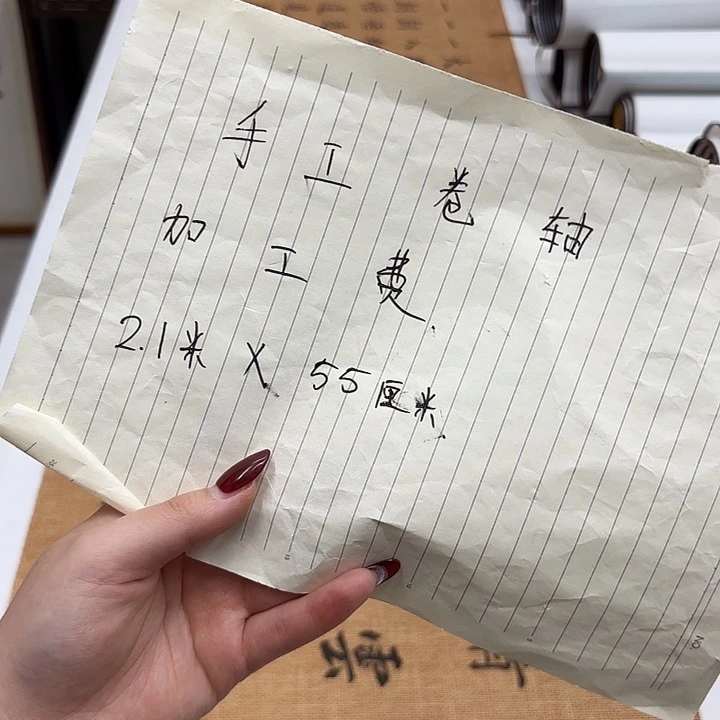 手工卷轴
加工费.
2.1米 X 55厘米.
No.